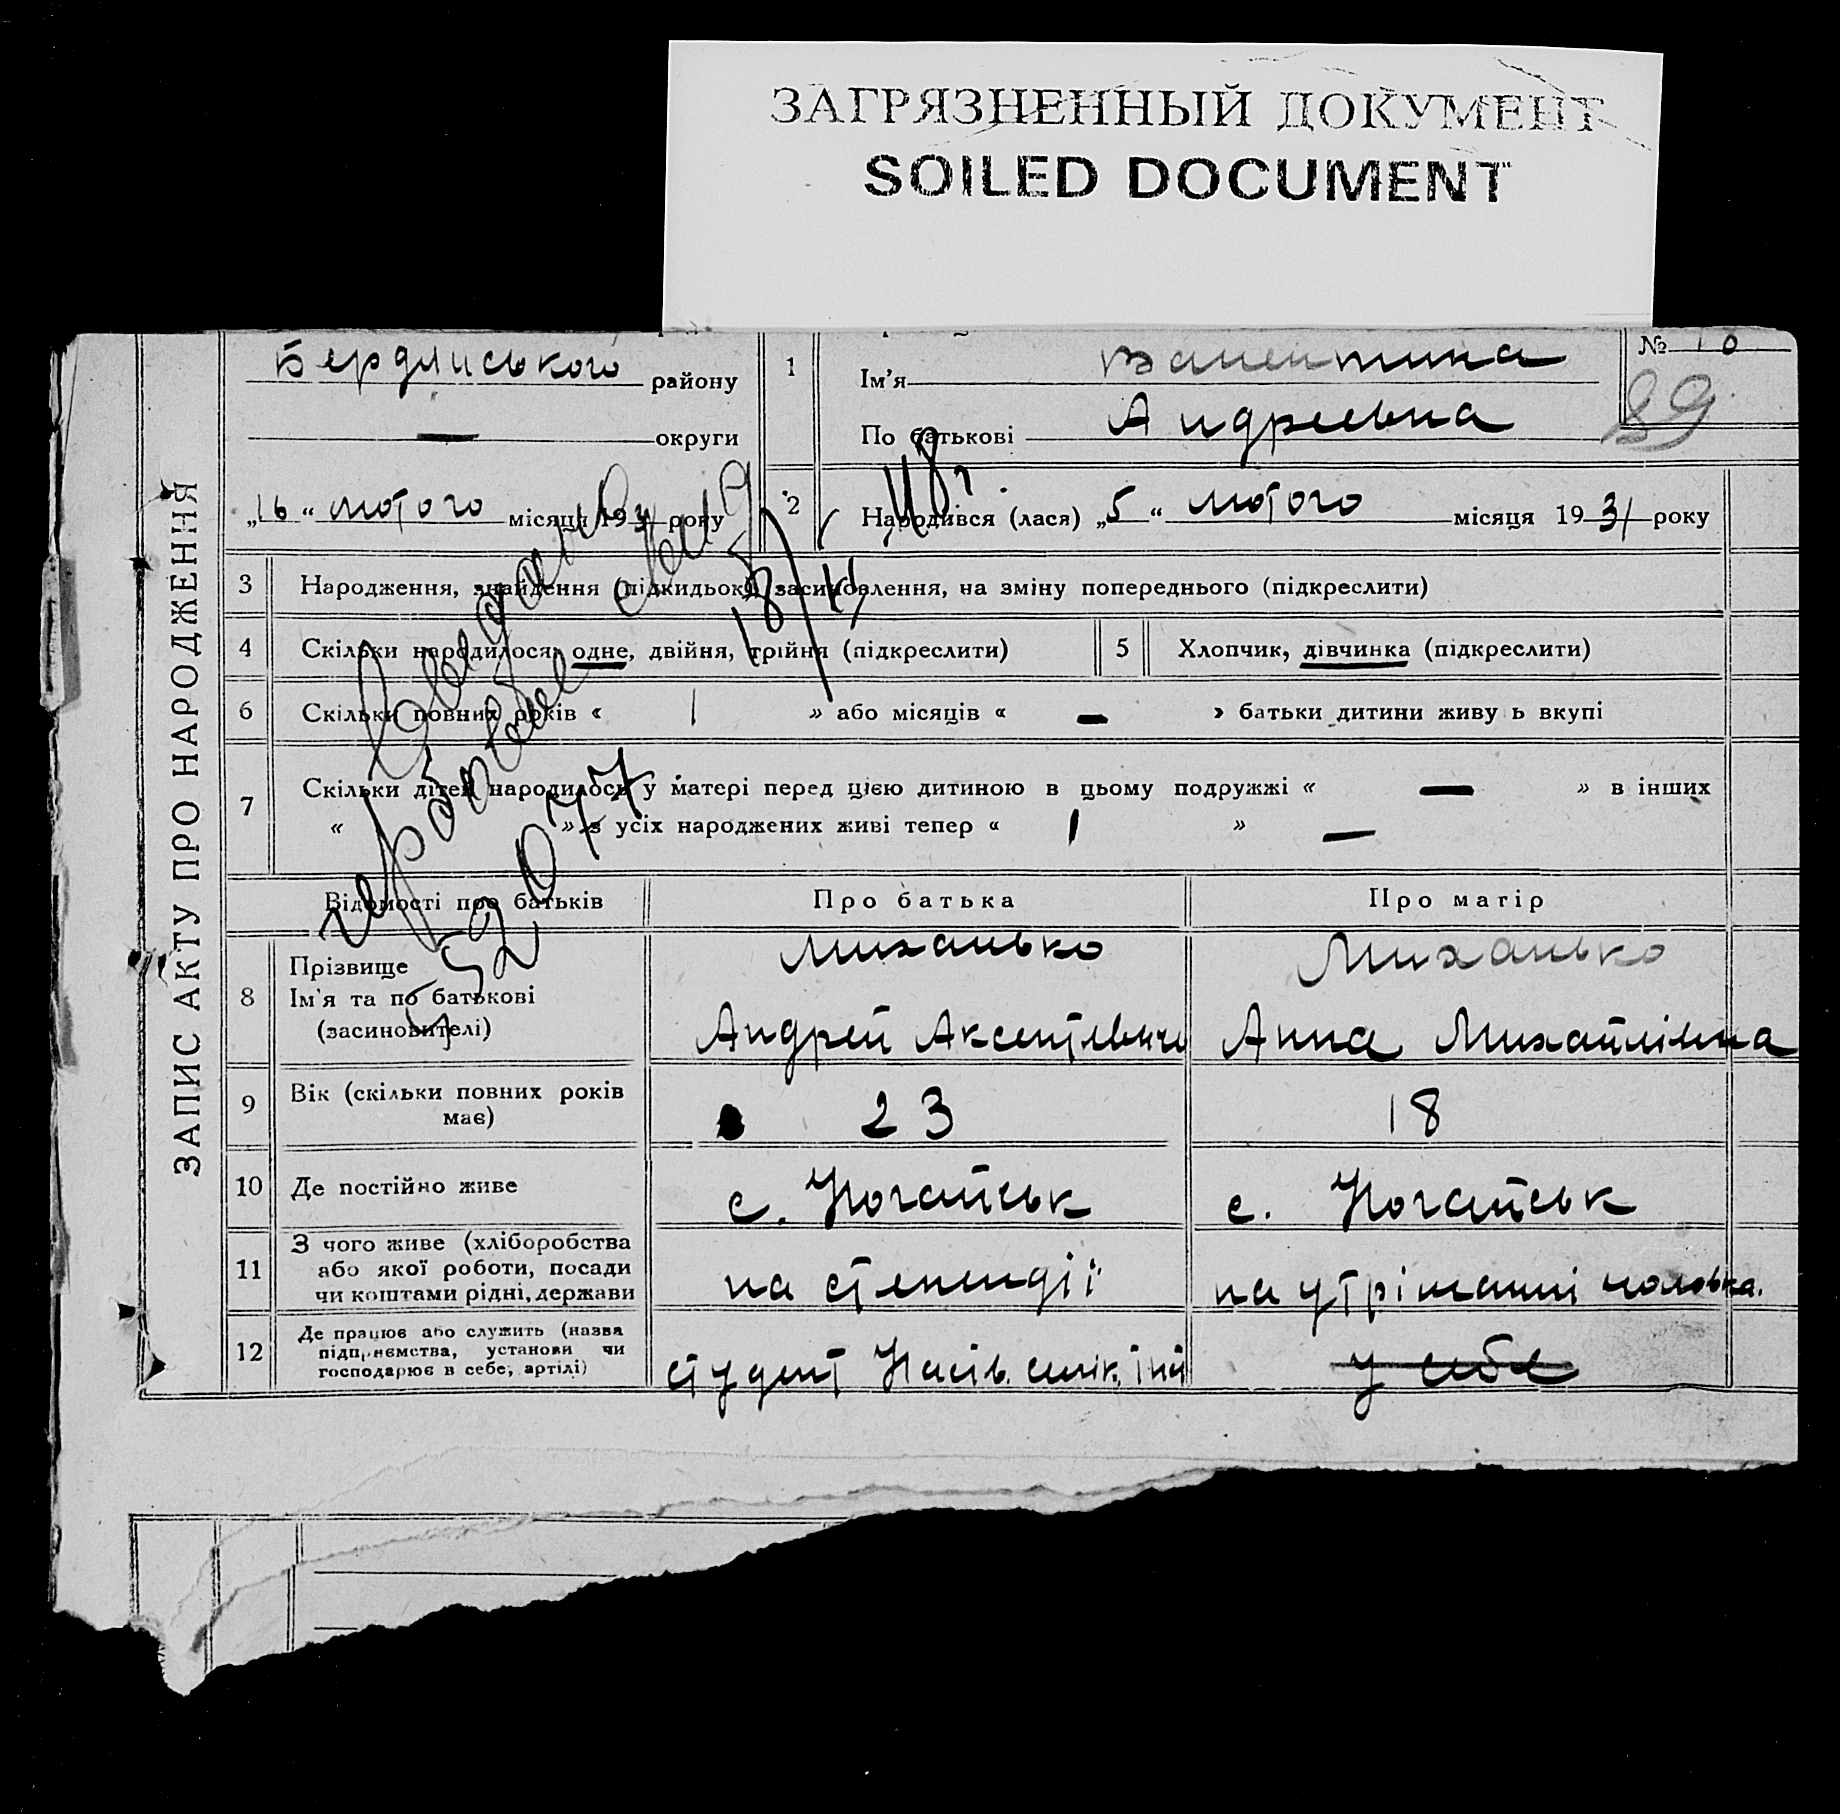 ЗАГРЯЗНЕННЫЙ ДОКУМЕНТ
SOILED DOCUMENT
ЗАПИС АКТУ ПРО НАРОДЖЕННЯ
Бердянського району
— округи
„16“ лютого місяця 1931 року
1 Ім’я Валентина
По батькові Андреевна
№ 10
89
2 Народився (лася) „5“ лютого місяця 1931 року
3 Народження, знайдення (підкидьок) засиновлення, на зміну попереднього (підкреслити)
4 Скільки народилося: одне, двійня, трійня (підкреслити)
5 Хлопчик, дівчинка (підкреслити)
6 Скільки повних років « 1 » або місяців « — » батьки дитини живу ь вкупі
7 Скільки дітей народилось у матері перед цією дитиною в цьому подружжі « — » в інших
« » з усіх народжених живі тепер « 1 » —
52077
Відомості про батьків Про батька Про матір
8 Прізвище Миханько Миханько
Ім’я та по батькові
(засиновителі) Андрей Аксентьевич Анна Михайлівна
9 Вік (скільки повних років має) 23 18
10 Де постійно живе с. Ногайськ с. Ногайськ
11 З чого живе (хліборобства
або якої роботи, посади
чи коштами рідні, держави на степендії на утріманні чоловіка.
12 Де працює або служить (назва
підприємства, установи чи
господарює в себе, артілі) студент у себе